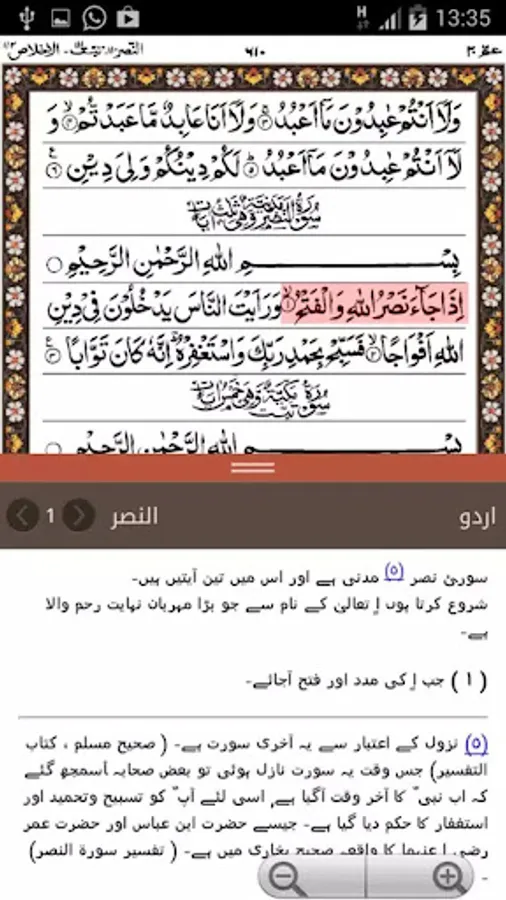 H 13:35
عم ۳۰ ٦١٠ النصر١١٠، تبت١١١ - الاخلاص١١٢
وَلَآ اَنْتُمْ عٰبِدُوْنَ مَآ اَعْبُدُ ۚ﴿۳﴾ وَلَآ اَنَا عَابِدٌ مَّا عَبَدْتُّمْ ۙ﴿۴﴾ وَ
لَآ اَنْتُمْ عٰبِدُوْنَ مَآ اَعْبُدُ ؕ﴿۵﴾ لَكُمْ دِيْنُكُمْ وَلِيَ دِيْنِ ﴿۶﴾
سُوْرَةُ النَّصْرِ مَدَنِيَّةٌ وَّهِيَ ثَلٰثُ اٰيَاتٍ
بِسْمِ اللهِ الرَّحْمٰنِ الرَّحِيْمِ
اِذَا جَآءَ نَصْرُ اللهِ وَالْفَتْحُ ۙ﴿۱﴾ وَرَاَيْتَ النَّاسَ يَدْخُلُوْنَ فِيْ دِيْنِ
اللهِ اَفْوَاجًا ۙ﴿۲﴾ فَسَبِّحْ بِحَمْدِ رَبِّكَ وَاسْتَغْفِرْهُ ؔؕ اِنَّهٗ كَانَ تَوَّابًا ﴿۳﴾
سُوْرَةُ تَبَّتْ مَكِّيَّةٌ وَّهِيَ خَمْسُ اٰيَاتٍ
بِسْمِ اللهِ الرَّحْمٰنِ الرَّحِيْمِ
اردو النصر 1
سورئ نصر (٥) مدنی ہے اور اس میں تین آیتیں ہیں۔
شروع کرتا ہوں اﷲ تعالیٰ کے نام سے جو بڑا مہربان نہایت رحم والا
ہے۔
(١) جب اﷲ کی مدد اور فتح آجائے۔
(٥) نزول کے اعتبار سے یہ آخری سورت ہے۔ (صحیح مسلم ، کتاب
التفسیر) جس وقت یہ سورت نازل ہوئی تو بعض صحابہ ؓسمجھ گئے
کہ اب نبی ؐ کا آخر وقت آگیا ہے، اسی لئے آپ ؐ کو تسبیح وتحمید اور
استغفار کا حکم دیا گیا ہے۔ جیسے حضرت ابن عباس اور حضرت عمر
رضی اﷲ عنہما کا واقعہ صحیح بخاری میں ہے۔ (تفسیر سورۃ النصر)
۔